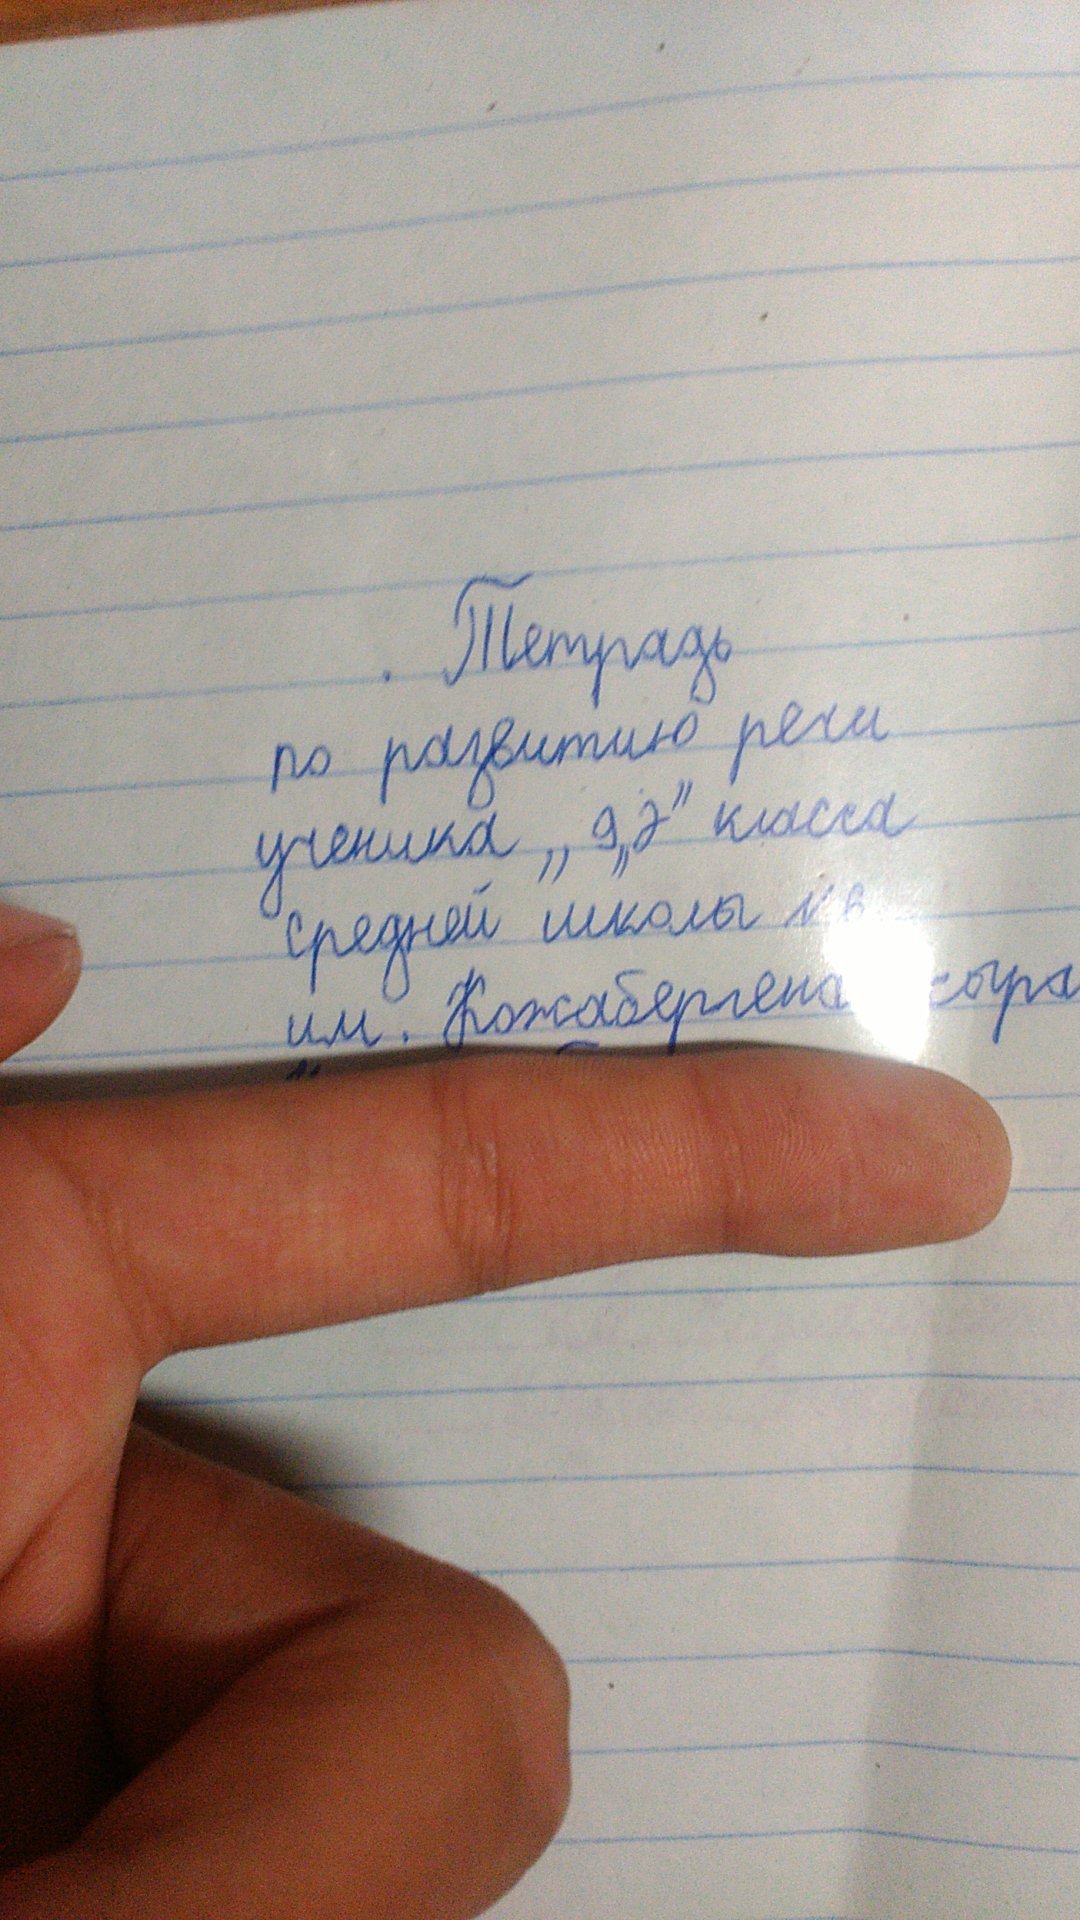 Тетрадь
по развитию речи
ученика „9 „Э" класса
средней школы
им. Кожабергена жырау